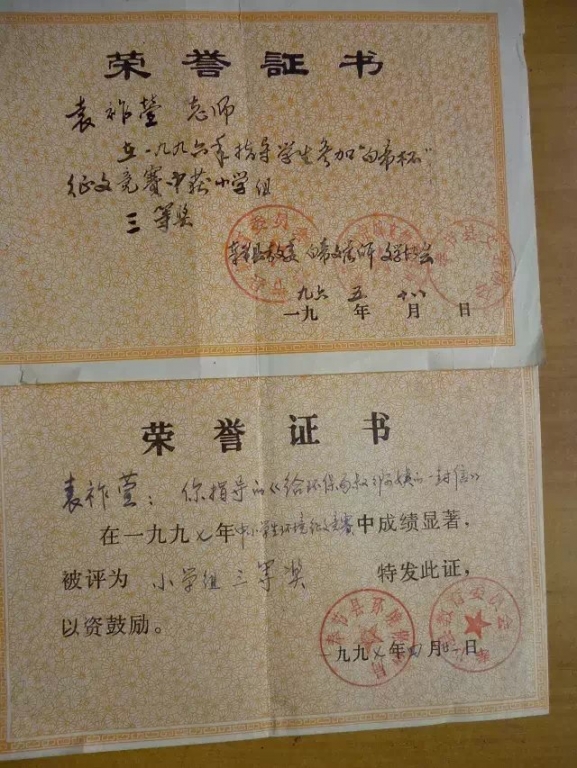 荣誉証书
袁祚萱 老师
在一九九六年指导学生参加"白帝杯"
征文竞赛中获小学组
三等奖
奉节县教委 白帝文学协会
一九九六年五月十八日
荣誉证书
袁祚萱：你指导的《给环保局叔叔阿姨的一封信》
在一九九七年中小学生环境征文竞赛中成绩显著，
被评为 小学组三等奖 特发此证，
以资鼓励。
一九九七年 月 日